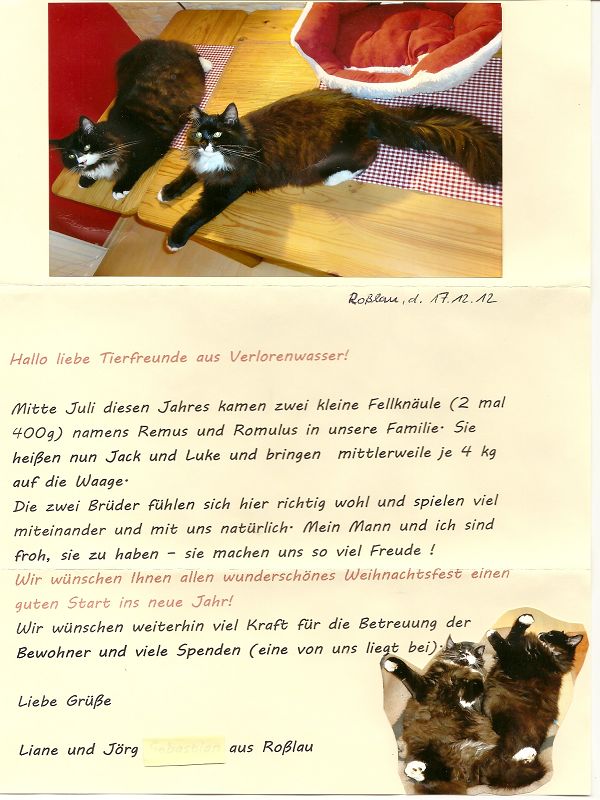 Roßlau, d. 17.12.12
Hallo liebe Tierfreunde aus Verlorenwasser!
Mitte Juli diesen Jahres kamen zwei kleine Fellknäule (2 mal
400g) namens Remus und Romulus in unsere Familie. Sie
heißen nun Jack und Luke und bringen mittlerweile je 4 kg
auf die Waage.
Die zwei Brüder fühlen sich hier richtig wohl und spielen viel
miteinander und mit uns natürlich. Mein Mann und ich sind
froh, sie zu haben – sie machen uns so viel Freude !
Wir wünschen Ihnen allen wunderschönes Weihnachtsfest einen
guten Start ins neue Jahr!
Wir wünschen weiterhin viel Kraft für die Betreuung der
Bewohner und viele Spenden (eine von uns liegt bei).
Liebe Grüße
Liane und Jörg aus Roßlau